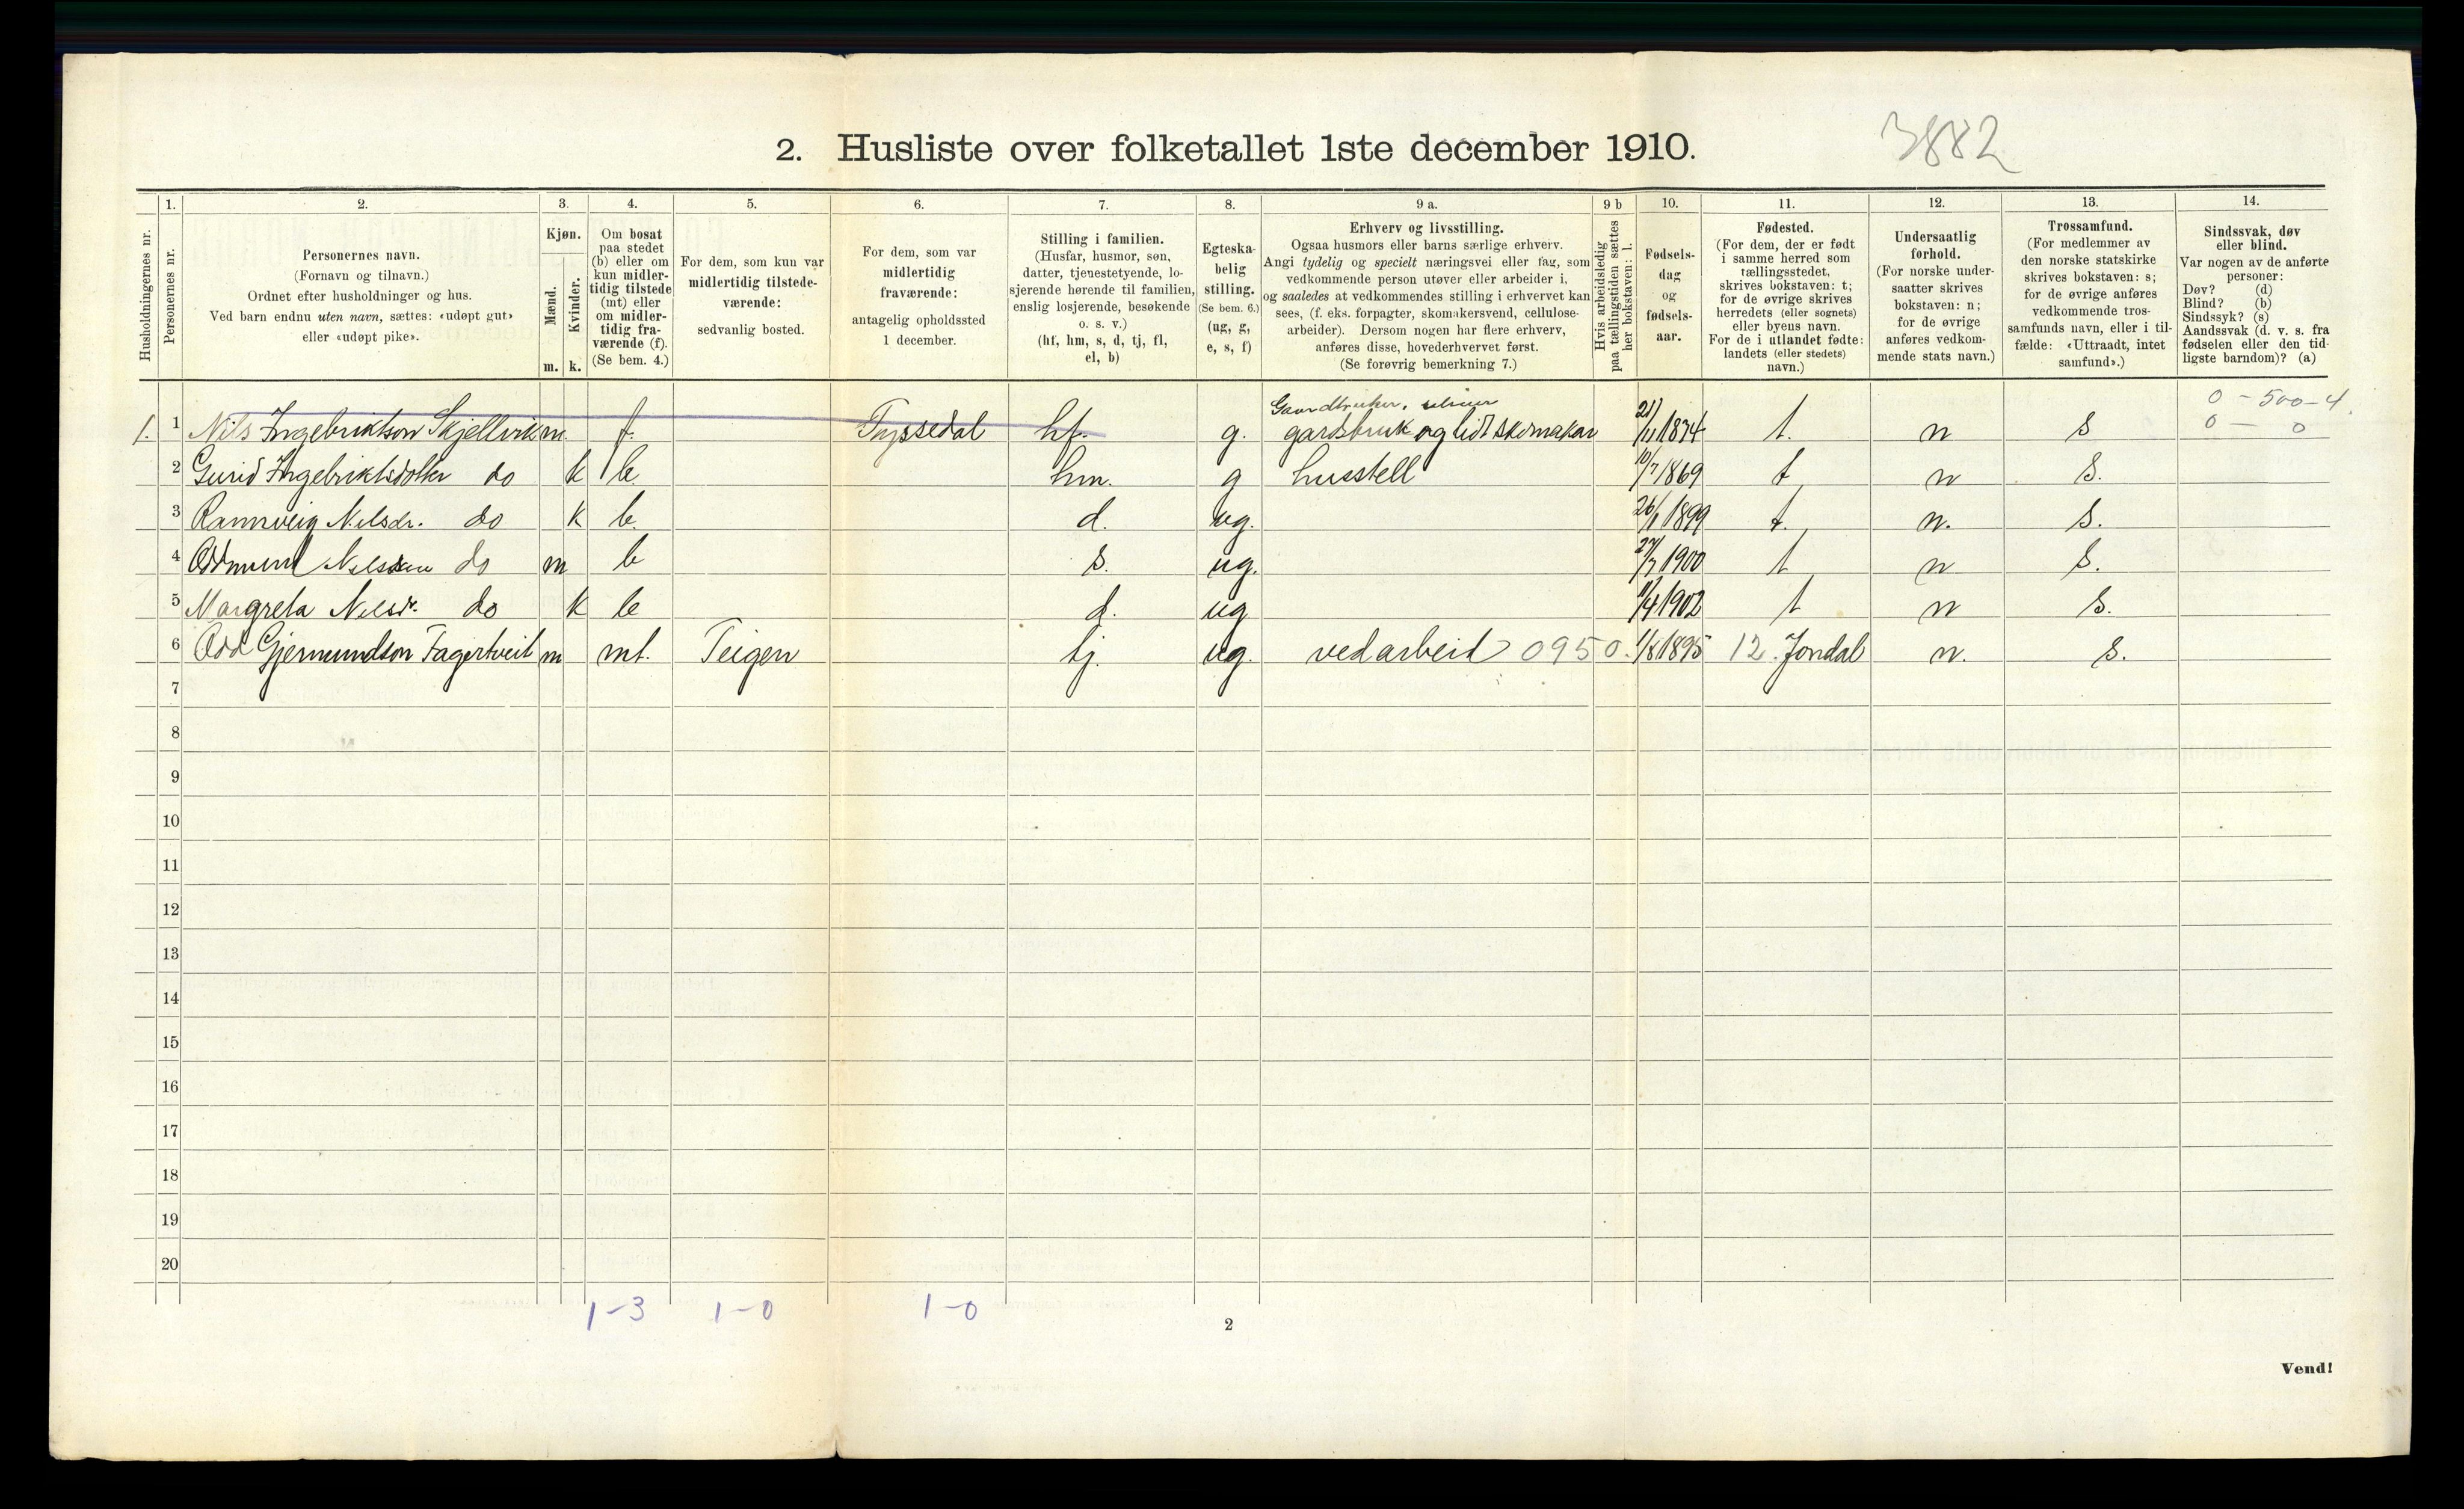 2. Husliste over folketallet 1ste december 1910.
3882
Husholdningernes nr.
1.
Personernes nr.
2.
Personernes navn.
(Fornavn og tilnavn.)
Ordnet efter husholdninger og hus.
Ved barn endnu uten navn, sættes: «udøpt gut»
eller «udøpt pike».
3.
Kjøn.
Mænd.
Kvinder.
m. k.
4.
Om bosat
paa stedet
(b) eller om
kun midler-
tidig tilstede
(mt) eller
om midler-
tidig fra-
værende (f).
(Se bem. 4.)
5.
For dem, som kun var
midlertidig tilstede-
værende:
sedvanlig bosted.
6.
For dem, som var
midlertidig
fraværende:
antagelig opholdssted
1 december.
7.
Stilling i familien.
(Husfar, husmor, søn,
datter, tjenestetyende, lo-
sjerende hørende til familien,
enslig losjerende, besøkende
o. s. v.)
(hf, hm, s, d, tj, fl,
el, b)
8.
Egteska-
belig
stilling.
(Se bem. 6.)
(ug, g,
e, s, f)
9 a.
Erhverv og livsstilling.
Ogsaa husmors eller barns særlige erhverv.
Angi tydelig og specielt næringsvei eller fag, som
vedkommende person utøver eller arbeider i,
og saaledes at vedkommendes stilling i erhvervet kan
sees, (f. eks. forpagter, skomakersvend, cellulose-
arbeider). Dersom nogen har flere erhverv,
anføres disse, hovederhvervet først.
(Se forøvrig bemerkning 7.)
9 b
Hvis arbeidsledig
paa tællingstiden sættes
her bokstaven: l.
10.
Fødsels-
dag
og
fødsels-
aar.
11.
Fødested.
(For dem, der er født
i samme herred som
tællingsstedet,
skrives bokstaven: t;
for de øvrige skrives
herredets (eller sognets)
eller byens navn.
For de i utlandet fødte:
landets (eller stedets)
navn.)
12.
Undersaatlig
forhold.
(For norske under-
saatter skrives
bokstaven: n;
for de øvrige
anføres vedkom-
mende stats navn.)
13.
Trossamfund.
(For medlemmer av
den norske statskirke
skrives bokstaven: s;
for de øvrige anføres
vedkommende tros-
samfunds navn, eller i til-
fælde: «Uttraadt, intet
samfund».)
14.
Sindssvak, døv
eller blind.
Var nogen av de anførte
personer:
Døv? (d)
Blind? (b)
Sindssyk? (s)
Aandssvak (d. v. s. fra
fødselen eller den tid-
ligste barndom)? (a)
0 - 500 - 4.
0 - 0
Gaardbruker,
1. 1 Nils Ingebriktson Skjellvik m f. Tyssedal hf. g. gardsbruk og lidt skomakar 21/11 1874 t. n s
2 Gurid Ingebriktsdotter do k b. hm. g husstell 10/7 1869 t n s.
3 Rannveig Nilsdr. do k b. d. ug. 26/1 1899 t. n. s.
4 Oddmund Nilsson do m b s. ug. 27/7 1900 t n s.
5 Margreta Nilsdr. do k b d. ug 11/4 1902 t n s.
6 Odd Gjermundson Fagertveit m mt. Teigen tj. ug. vedarbeid 0950. 1/8 1895 12. Jondal n. s.
7
8
9
10
11
12
13
14
15
16
17
18
19
20
1-3 1-0 1-0
2
Vend!